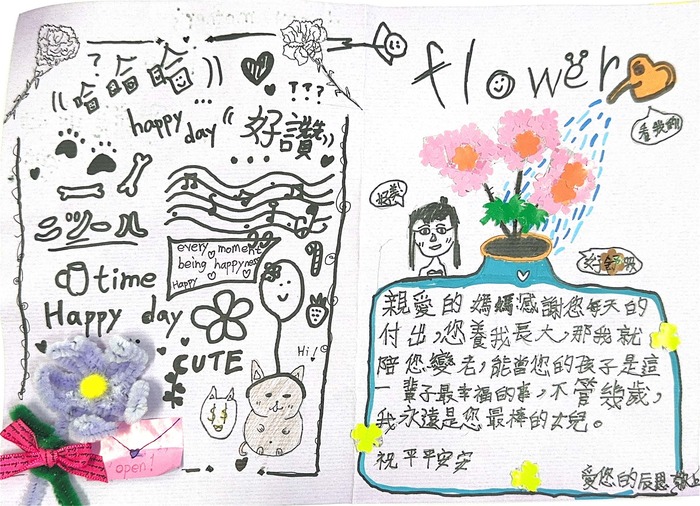 哈哈哈
???
happy day
好讚
every moment
being happyness
Happy
time
Happy day
CUTE
Hi!
open!
flower
看我的
好美
親愛的媽媽感謝您每天的
付出,您養我長大,那我就
陪您變老,能當您的孩子是這
一輩子最幸福的事,不管幾歲,
我永遠是您最棒的女兒。
祝平平安安
愛您的辰恩敬上